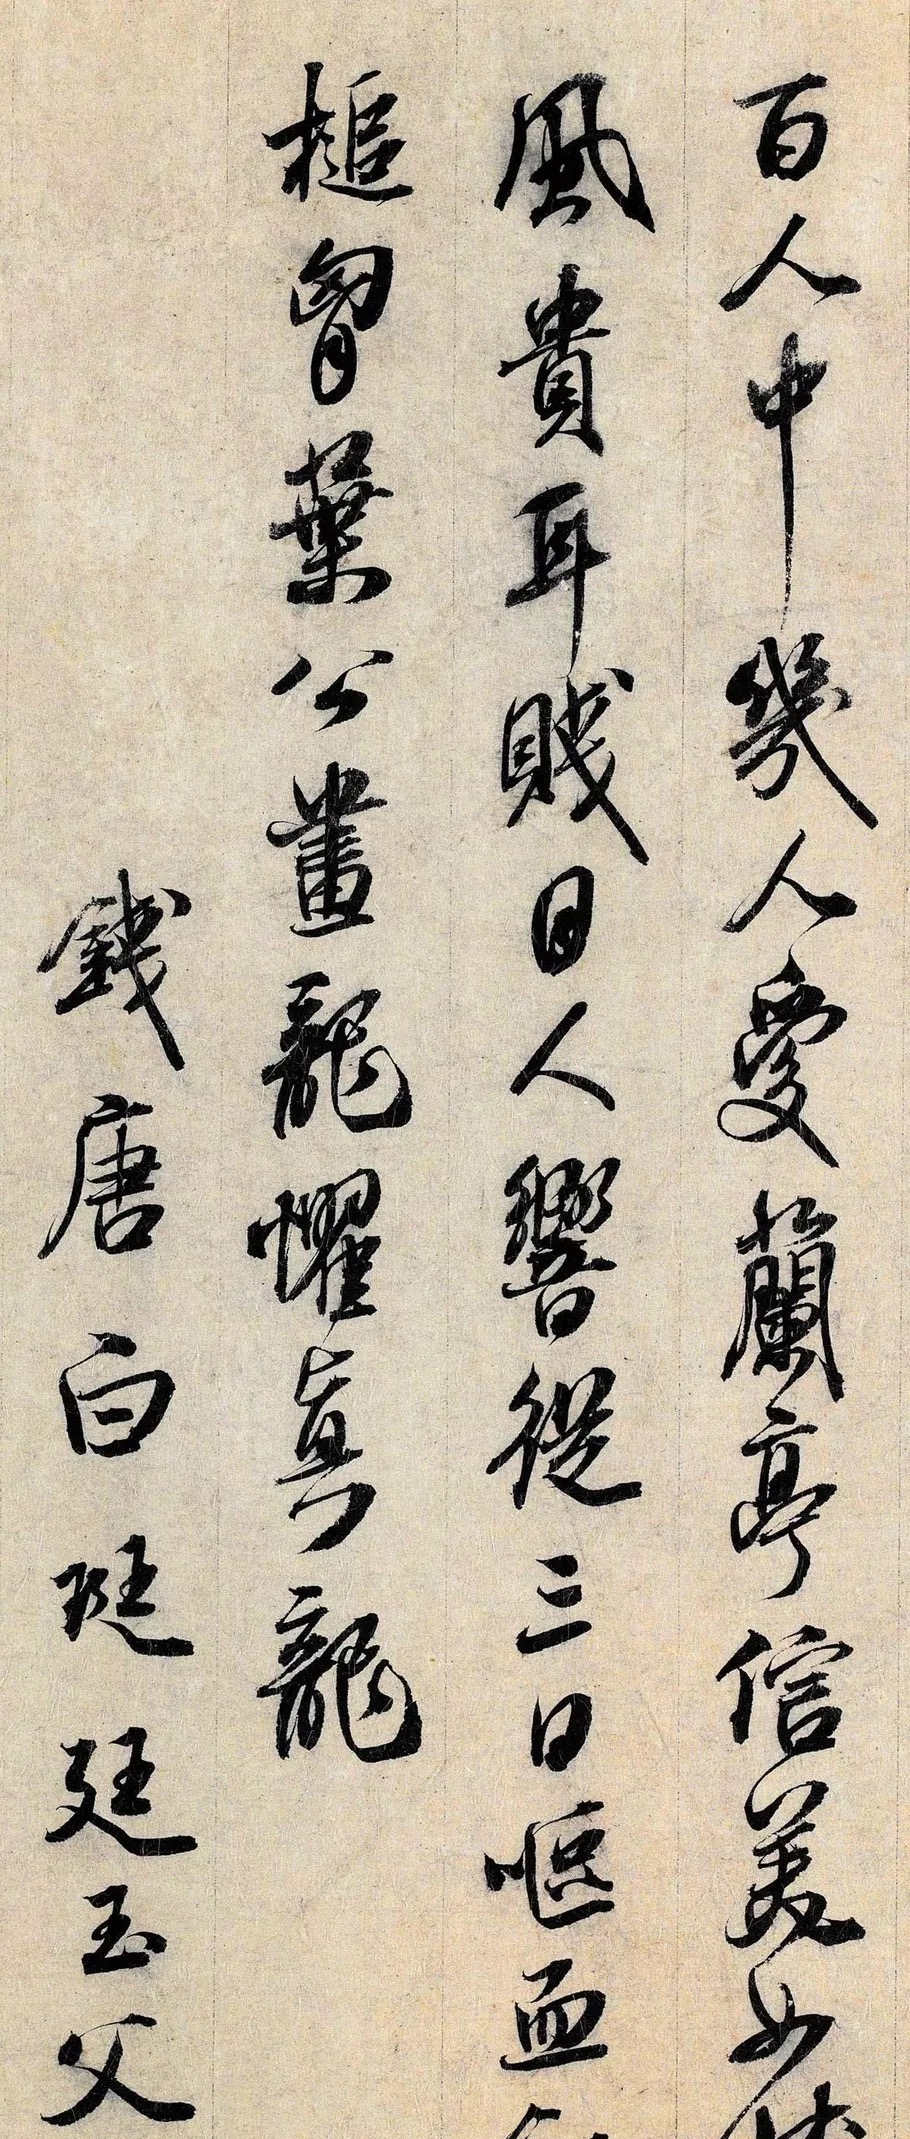 百人中幾人愛蘭亭信美女
風貴耳賤目人響從三日嘔血
槌胷葉公畫龍懼真龍
錢唐白珽廷玉父